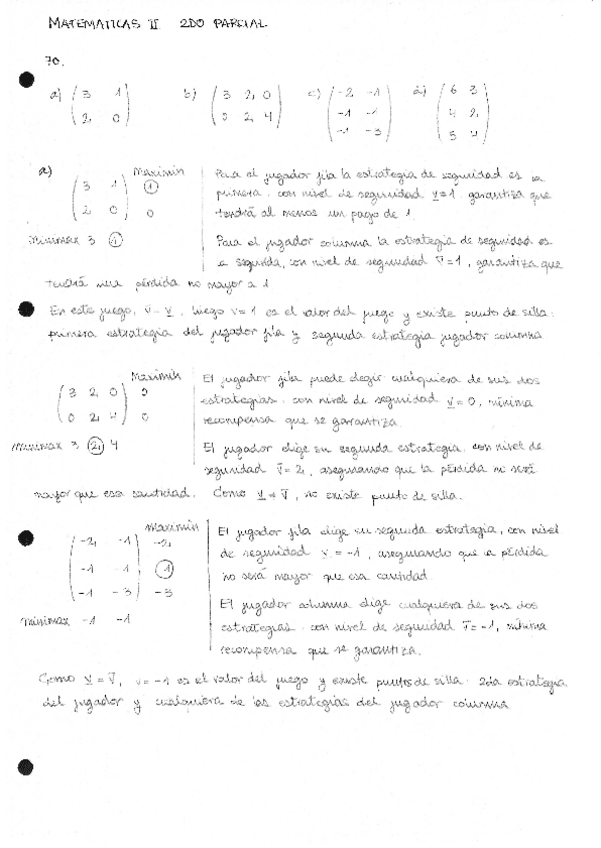 MATEMATICAS II 2DO PARCIAL
70.
a) ( 3 1 ) b) ( 3 2 0 ) c) ( -2 -1 ) d) ( 6 3 )
( 2 0 ) ( 0 2 4 ) ( -1 -1 ) ( 4 2 )
( -1 -3 ) ( 5 4 )
a) Maximin
( 3 1 ) 1
( 2 0 ) 0
Minimax 3 1
Para el jugador fila la estrategia de seguridad es la
primera, con nivel de seguridad v=1, garantiza que
tendrá al menos un pago de 1
Para el jugador columna la estrategia de seguridad es
la segunda, con nivel de seguridad v̄=1, garantiza que
tendrá una pérdida no mayor a 1
En este juego, v̄ = v, luego v=1 es el valor del juego y existe punto de silla:
primera estrategia del jugador fila y segunda estrategia jugador columna
Maximin
( 3 2 0 ) 0
( 0 2 4 ) 0
Minimax 3 2 4
El jugador fila puede elegir cualquiera de sus dos
estrategias, con nivel de seguridad v=0, mínima
recompensa que se garantiza.
El jugador elige su segunda estrategia, con nivel de
seguridad v̄=2, asegurando que la pérdida no será
mayor que esa cantidad. Como v ≠ v̄, no existe punto de silla.
maximin
( -2 -1 ) -2
( -1 -1 ) -1
( -1 -3 ) -3
minimax -1 -1
El jugador fila elige su segunda estrategia, con nivel
de seguridad v = -1, asegurando que la pérdida
no será mayor que esa cantidad
El jugador columna elige cualquiera de sus dos
estrategias, con nivel de seguridad v̄=-1, mínima
recompensa que se garantiza.
Como v = v̄, v=-1 es el valor del juego y existe puntos de silla: 2da estrategia
del jugador y cualquiera de las estrategias del jugador columna